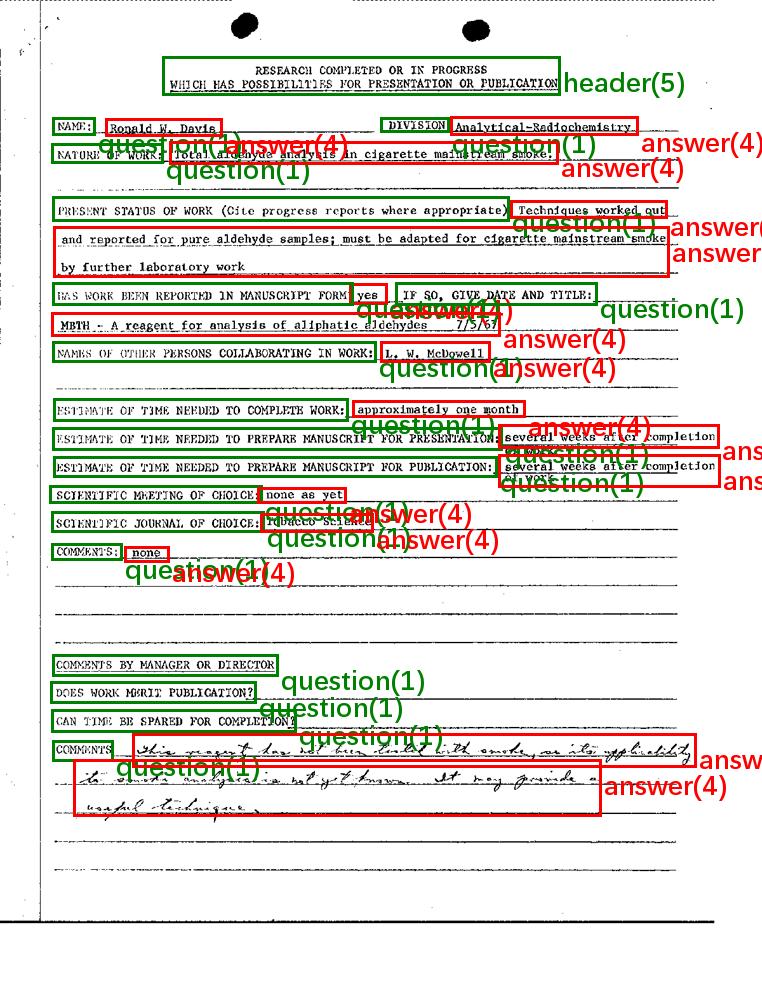 RESEARCH COMPLETED OR IN PROGRESS
WHICH HAS POSSIBILITIES FOR PRESENTATION OR PUBLICATION
header(5)
NAME: Ronald W. Davis DIVISION Analytical-Radiochemistry
question(1) answer(4) question(1) answer(4)
NATURE OF WORK: Total aldehyde analysis in cigarette mainstream smoke.
question(1) answer(4)
PRESENT STATUS OF WORK (Cite progress reports where appropriate) Techniques worked out
question(1) answer(
and reported for pure aldehyde samples; must be adapted for cigarette mainstream smoke
answer
by further laboratory work
HAS WORK BEEN REPORTED IN MANUSCRIPT FORM yes IF SO, GIVE DATE AND TITLE:
question(1) answer(4) question(1)
MBTH - A reagent for analysis of aliphatic aldehydes 7/5/67
answer(4)
NAMES OF OTHER PERSONS COLLABORATING IN WORK: L. W. McDowell
question(1) answer(4)
ESTIMATE OF TIME NEEDED TO COMPLETE WORK: approximately one month
question(1) answer(4)
ESTIMATE OF TIME NEEDED TO PREPARE MANUSCRIPT FOR PRESENTATION: several weeks after completion
question(1) ans
ESTIMATE OF TIME NEEDED TO PREPARE MANUSCRIPT FOR PUBLICATION: several weeks after completion
of work
question(1) ans
SCIENTIFIC MEETING OF CHOICE: none as yet
question(1) answer(4)
SCIENTIFIC JOURNAL OF CHOICE: Tobacco Science
question(1) answer(4)
COMMENTS: none
question(1) answer(4)
COMMENTS BY MANAGER OR DIRECTOR
question(1)
DOES WORK MERIT PUBLICATION?
question(1)
CAN TIME BE SPARED FOR COMPLETION?
question(1)
COMMENTS This reagent has not been tested with smoke, so its applicability
question(1) answ
to smoke analysis is not yet known. It may provide a
answer(4)
useful technique.